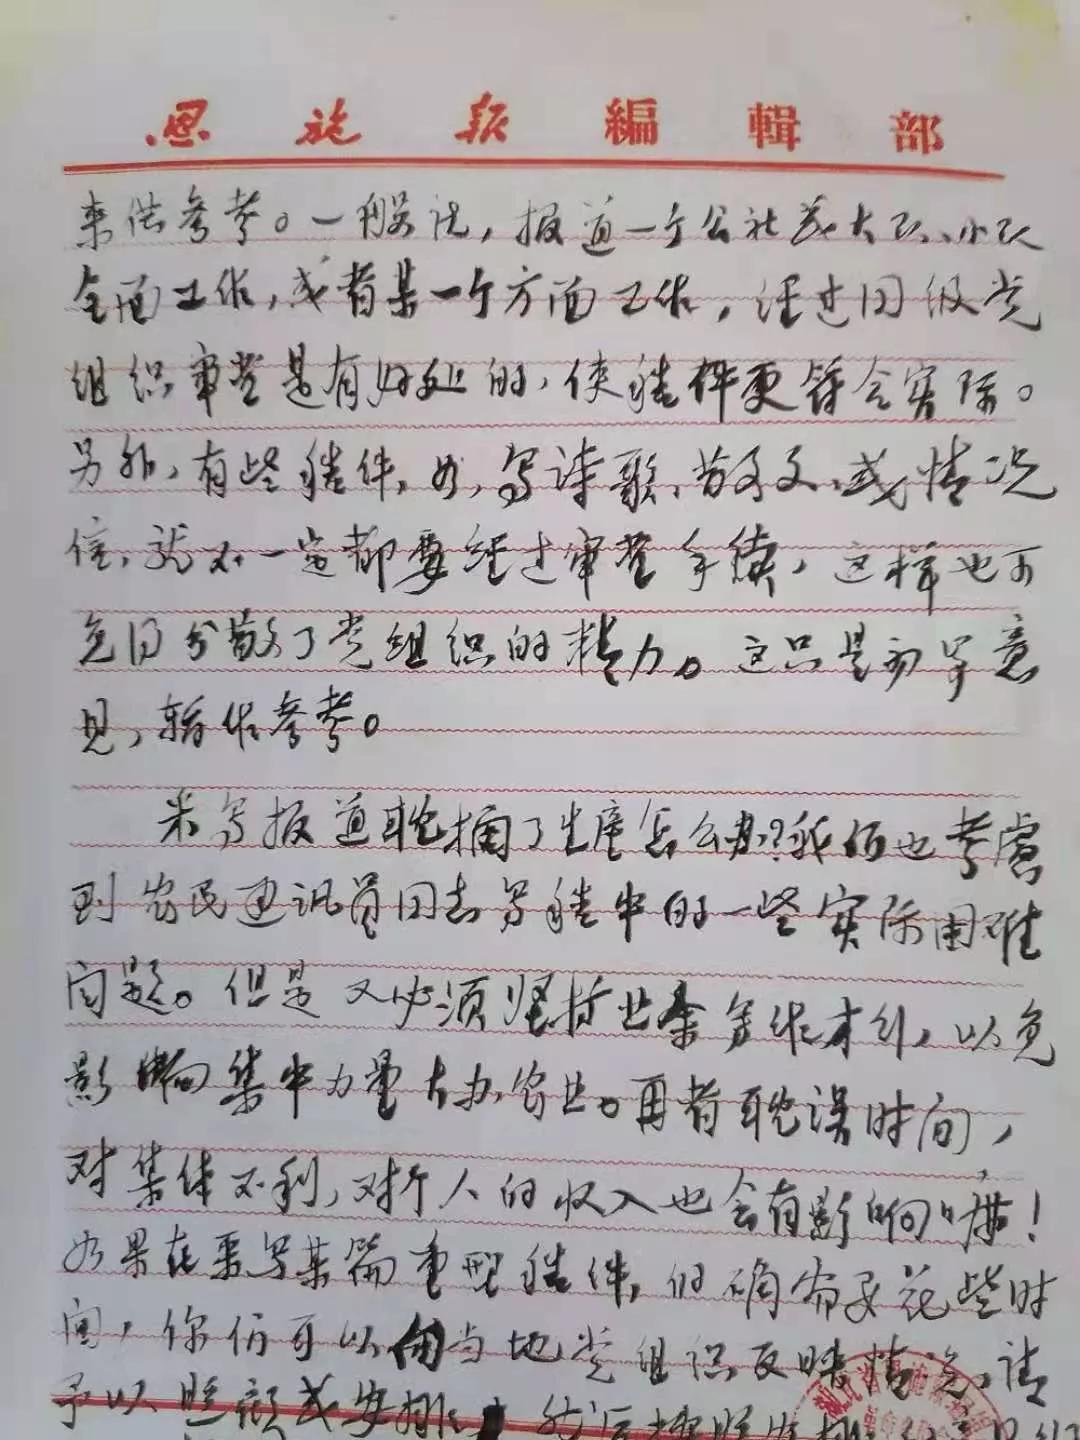 恩施报編輯部
来供参考。一般说，报道一个公社或大队、小队
全面工作，或者某一个方面工作，经过同级党
组织审查是有好处的，使稿件更符合实际。
另外，有些稿件，如，写诗歌、散文、或情况
信，就不一定都要经过审查手续，这样也可
免得分散了党组织的精力。这只是初步意
见，暂供参考。
采写报道耽搁了生产怎么办？我们也考虑
到农民通讯员同志写稿中的一些实际困难
问题。但是又必须坚持业余写作才行，以免
影响集中力量大办农业。再者耽误时间，
对集体不利，对个人的收入也会有影响嘛！
如果在采写某篇重型稿件，的确需要花些时
间，你们可以向当地党组织反映情况，请
予以照顾或安排，然后按照安排